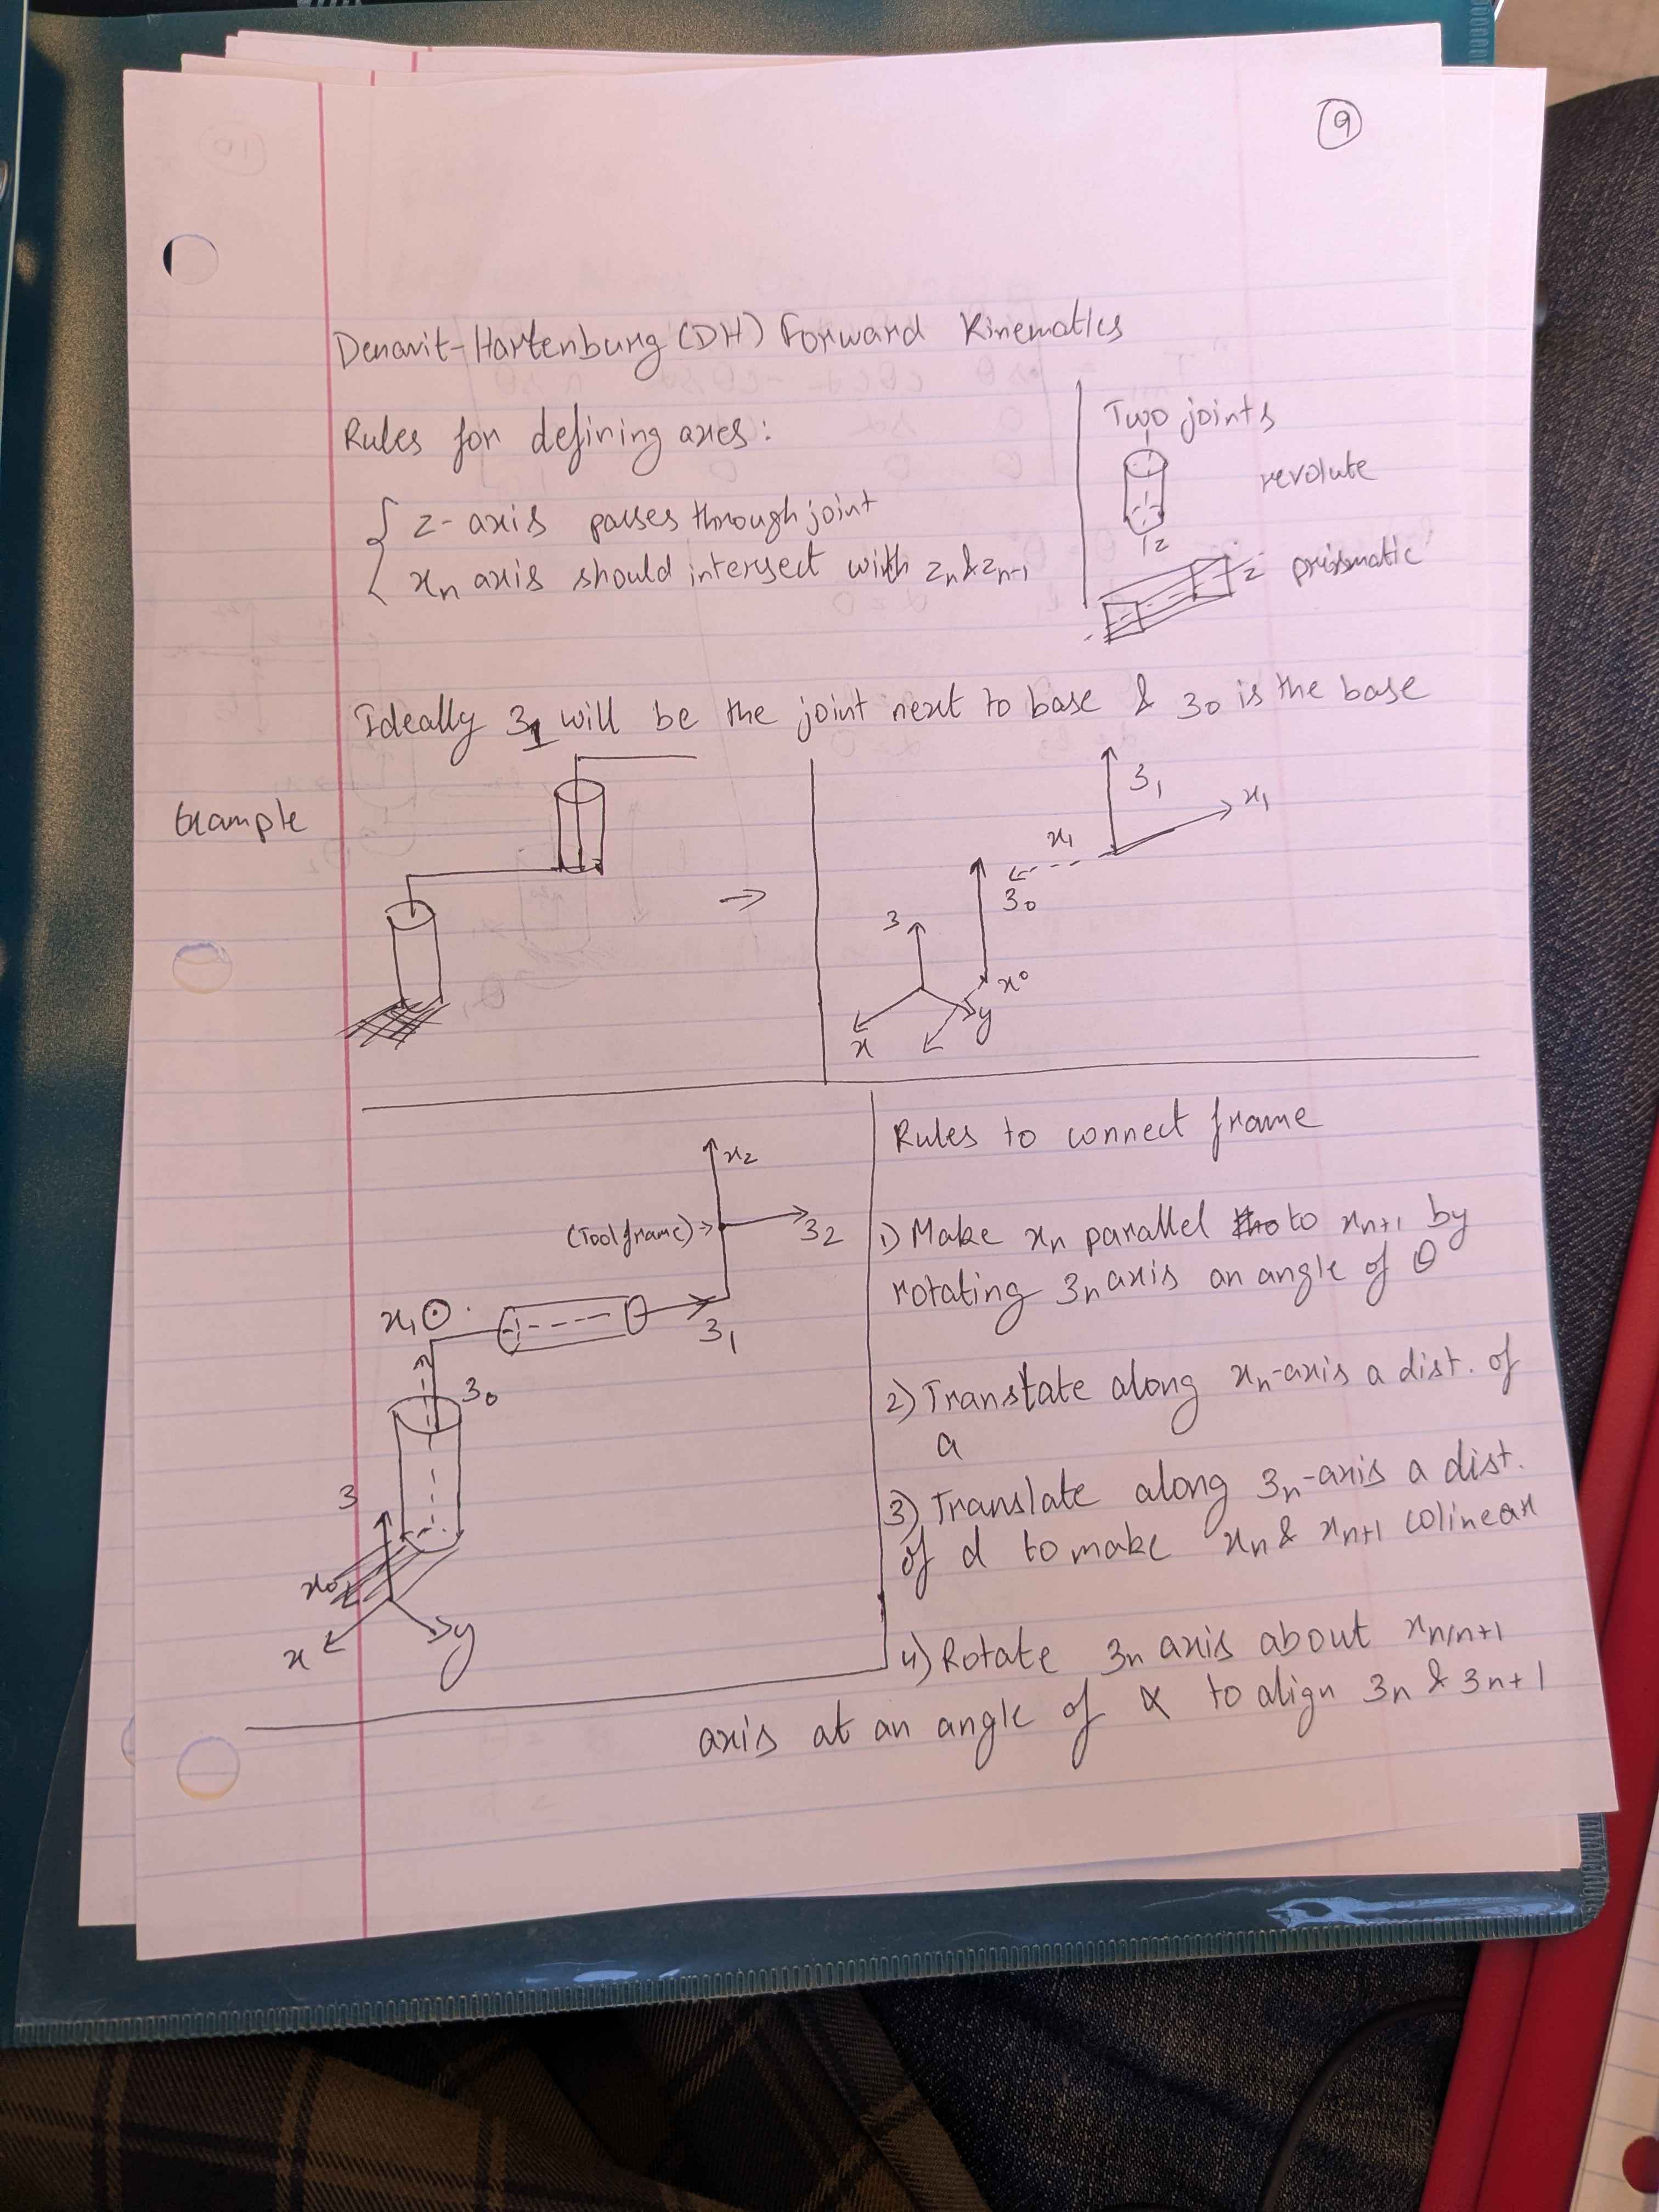 9
Denavit-Hartenburg (DH) Forward Kinematics
Rules for defining axes:
z-axis passes through joint
xn axis should intersect with zn & zn-1
Two joints
revolute
z
z prismatic
Ideally z1 will be the joint next to base & z0 is the base
Example
z1
x1
x1
z0
z
x0
y
x
x2
(Tool frame)
z2
x1
z1
z0
z
x0
x
y
Rules to connect frame
1) Make xn parallel to xn+1 by
rotating zn axis an angle of θ
2) Translate along xn-axis a dist. of
a
3) Translate along zn-axis a dist.
of d to make xn & xn+1 colinear
4) Rotate zn axis about xn/n+1
axis at an angle of α to align zn & zn+1